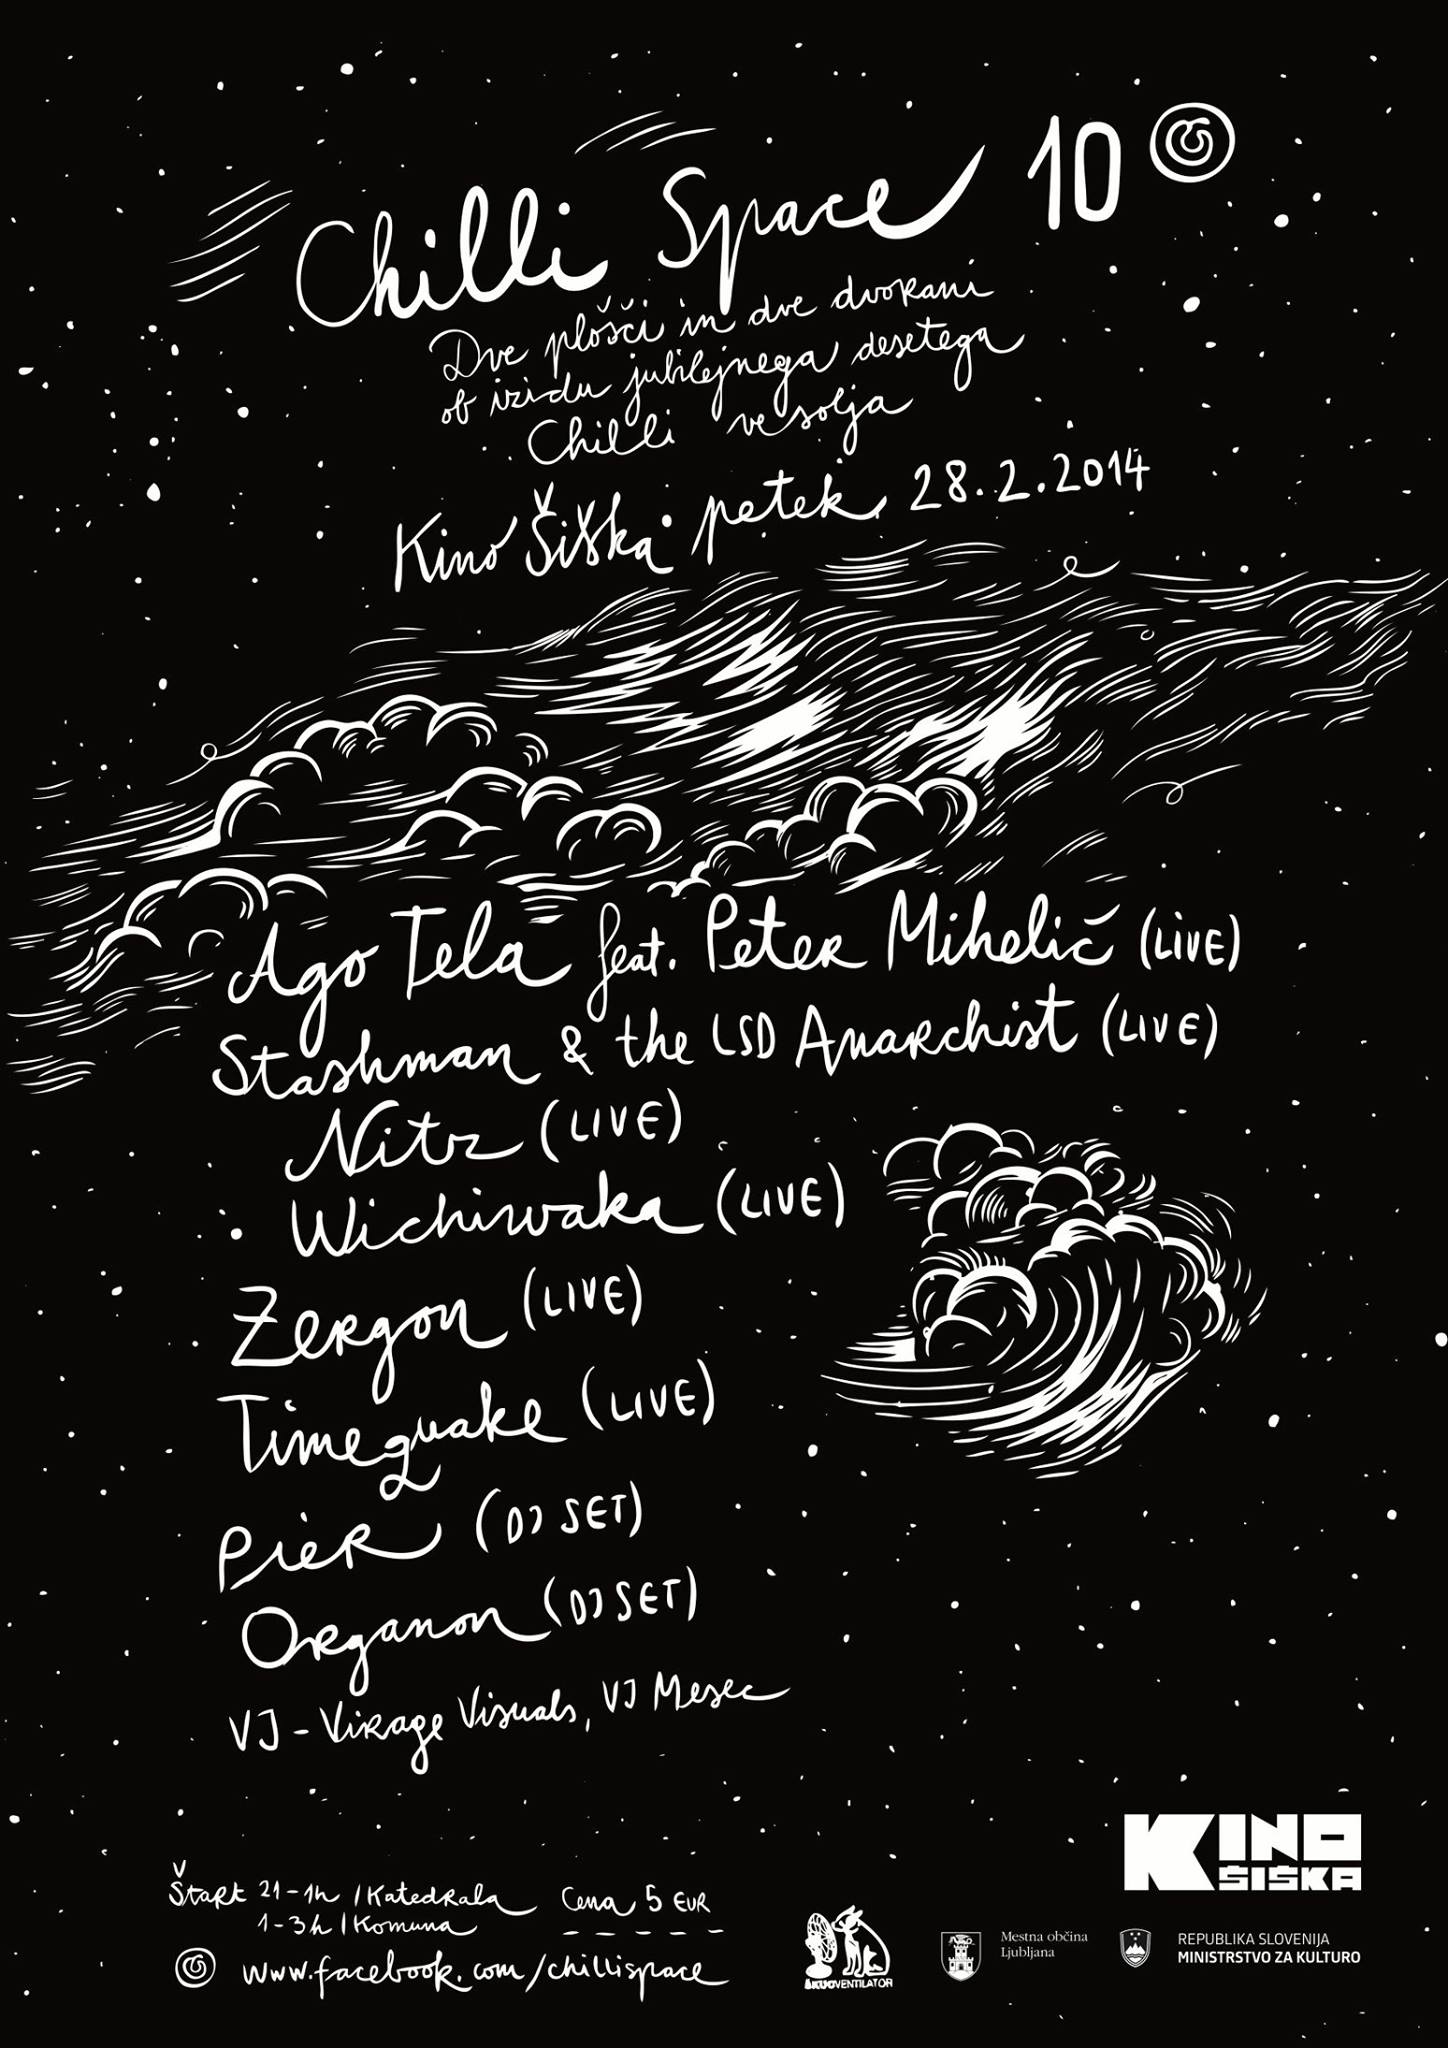 Chilli Space 10
Dve plošči in dve dvorani
ob izidu jubilejnega desetega
Chilli vesolja
Kino Šiška petek 28.2.2014
Ago Tela feat. Peter Mihelič (LIVE)
Stashman & the LSD Anarchist (LIVE)
Nitz (LIVE)
Wichiwaka (LIVE)
Zergon (LIVE)
Timequake (LIVE)
Pier (DJ SET)
Organon (DJ SET)
VJ - Virage Visuals, VJ Mesec
KINO
ŠIŠKA
Štart 21-1h / Katedrala Cena 5 EUR
1-3h / Komuna
www.facebook.com/chillispace
ŠKUCVENTILATOR
Mestna občina
Ljubljana
REPUBLIKA SLOVENIJA
MINISTRSTVO ZA KULTURO